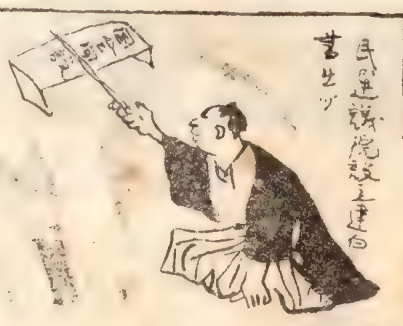 民選議院設立建白
書出ヅ